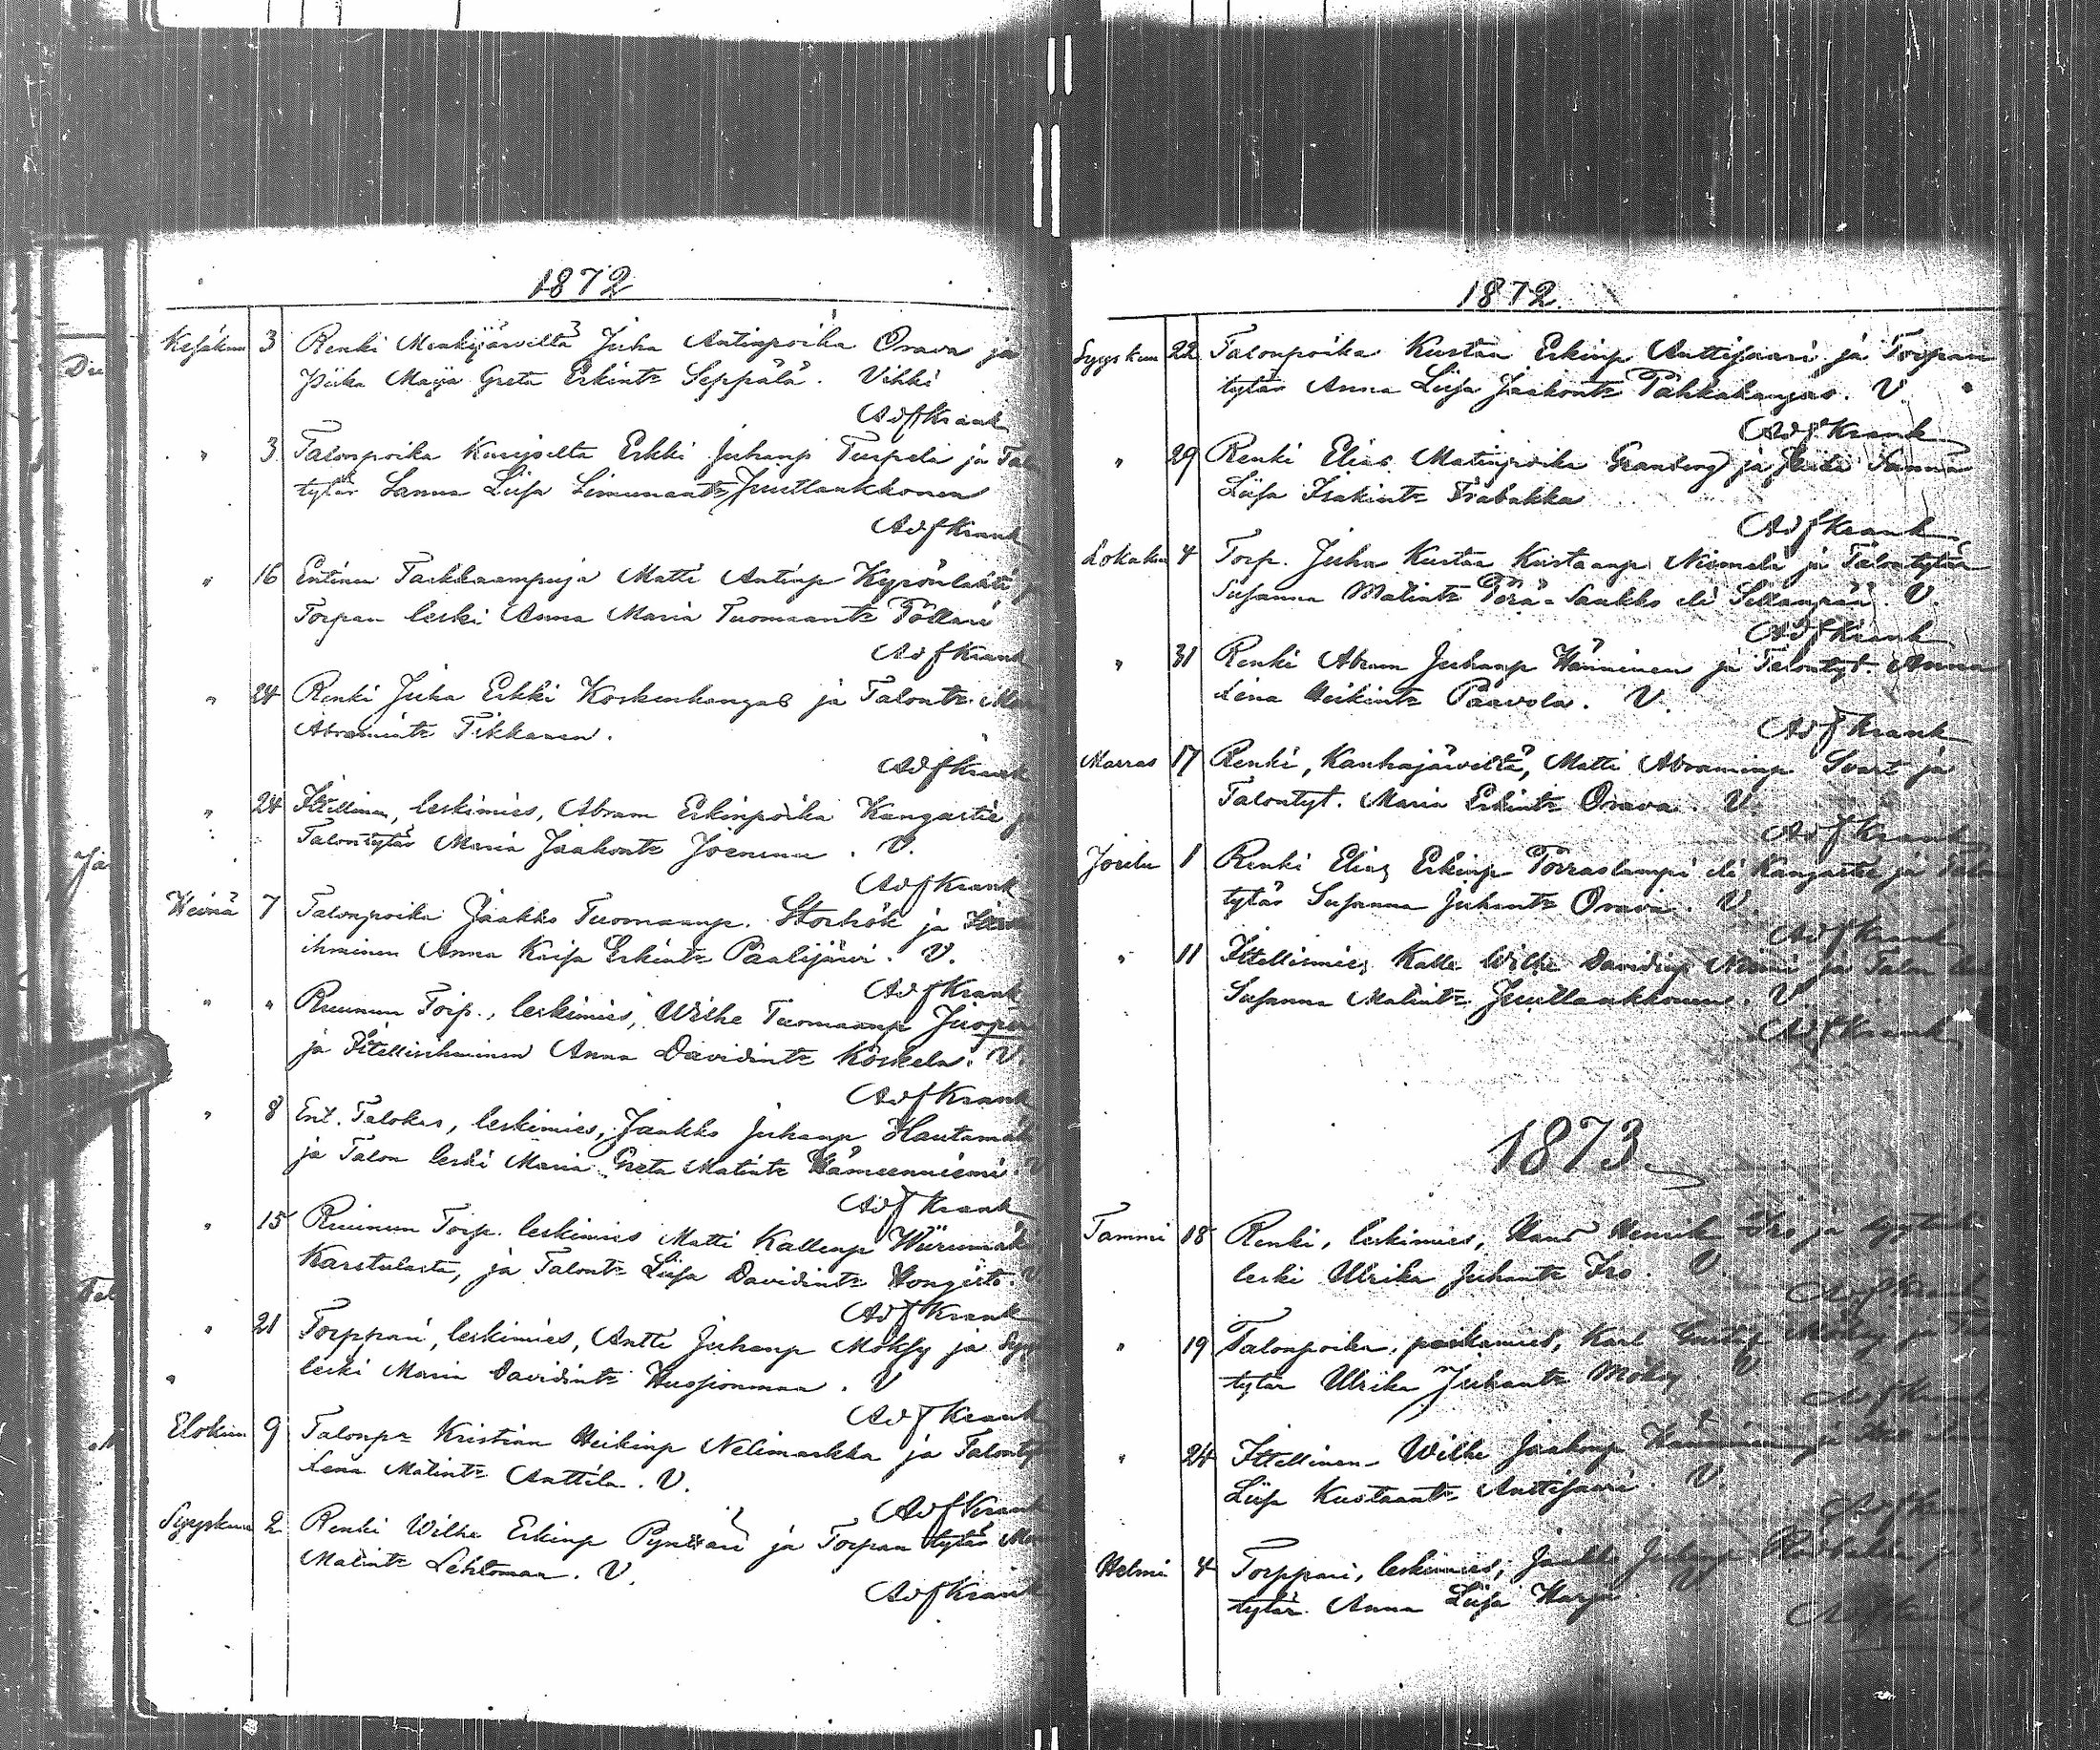 1872
Kesäkuu 3 Renki Menkijärveltä Juha Antinpoika Orava ja
Piika Maija Greta Erkint: Seppälä. Vihki
Adf Krank
" 3 Talonpoika Kurejoelta Erkki Juhanp Turpela ja Tal
tytär Sanna Liisa Simunant: Juuttankkonen
Adf Krank
" 16 Entinen Tarkkaampuja Matti Antinp Kyrönlahti ja
Torpan leski Anna Maria Tuomaant: Pollari
Adf Krank
" 24 Renki Juha Erkki Koskenkangas ja Talont:
Abramint: Tikkanen.
Adf Krank
" 24 Ittellinen, leskimies, Abram Erkinpoika Kangastie ja
Talontytär Maria Jaakont: Joenmaa. V.
Adf Krank
Heinä 7 Talonpoika Jaakko Tuomaanp. Storhök ja
ihminen Anna Kaisa Erkint: Paalijärvi. V.
Adf Krank
" " Ruunun Torp., leskimies, Wilhe Tuomaanp
ja Ittellisihminen Anna Davidint: Koskela. V.
Adf Krank
" 8 Ent. Talokas, leskimies, Jaakko Juhanp Hautamäki
ja Talon leski Maria Greta Matint: Hämeenniemi. V
Adf Krank
" 15 Ruunun Torp. leskimies Matti Kallenp Wiirimäki
Karstulasta, ja Talont: Liisa Davidint: Hongisto. V
Adf Krank
" 21 Torppari, leskimies, Antti Juhanp Möksy ja
" leski Maria Davidint: Huosionmaa. V
Adf Krank
Elokuu 9 Talonp: Kristian Heikinp Nelimarkka ja Talontyt
Lena Matint: Anttila. V.
Adf Krank
Syyskuu 2 Renki Wilhe Erkinp Pynttäri ja Torpan tytär
Matint: Lehtomaa. V.
Adf Krank
1872
Syyskuu 22 Talonpoika Kustaa Erkinp Anttisaari ja Torpan
tytär Anna Liisa Jaakont: Pahkakangas. V.
Adf Krank
" 29 Renki Elias Matinpoika Granberg ja Sanna
Liisa Isakint:
Adf Krank
Lokakuu 4 Torp. Juha Kustaa Kustaanp Niemelä ja Talontytär
Susanna Matint: Perä-Saukko eli Sillanpää. V.
Adf Krank
" 31 Renki Abram Juhanp Hänninen ja Talontyt. Anna
Lena Heikint: Paavola. V.
Adf Krank
Marras 17 Renki, Kauhajärveltä, Matti Abraminp Svart ja
Talontyt. Maria Erkint: Orava. V.
Adf Krank
Joulu 1 Renki Elias Erkinp Porraslampi eli Kangastie ja Talo
tytär Susanna Juhant: Orava. V.
Adf Krank
" 11 Ittellismies Kalle Wilhe Davidinp Niemi ja Talon
Susanna Matint: Juuttankkonen. V.
Adf Krank
1873
Tammi 18 Renki, leskimies, Hans Henrik Iso ja
leski Ulrika Juhant: Iso. V.
Adf Krank
" 19 Talonpoika, poikamies, Karl Gustaf Möksy ja
tytär Ulrika Juhant: Möksy V
Adf Krank
" 24 Ittellinen Wilhe Jaakonp Hänninen ja
Liisa Kustaant: Anttisaari. V.
Adf Krank
Helmi 4 Torppari, leskimies, Jaakko Juhanp
tytär. Anna Liisa Harju
Adf Krank